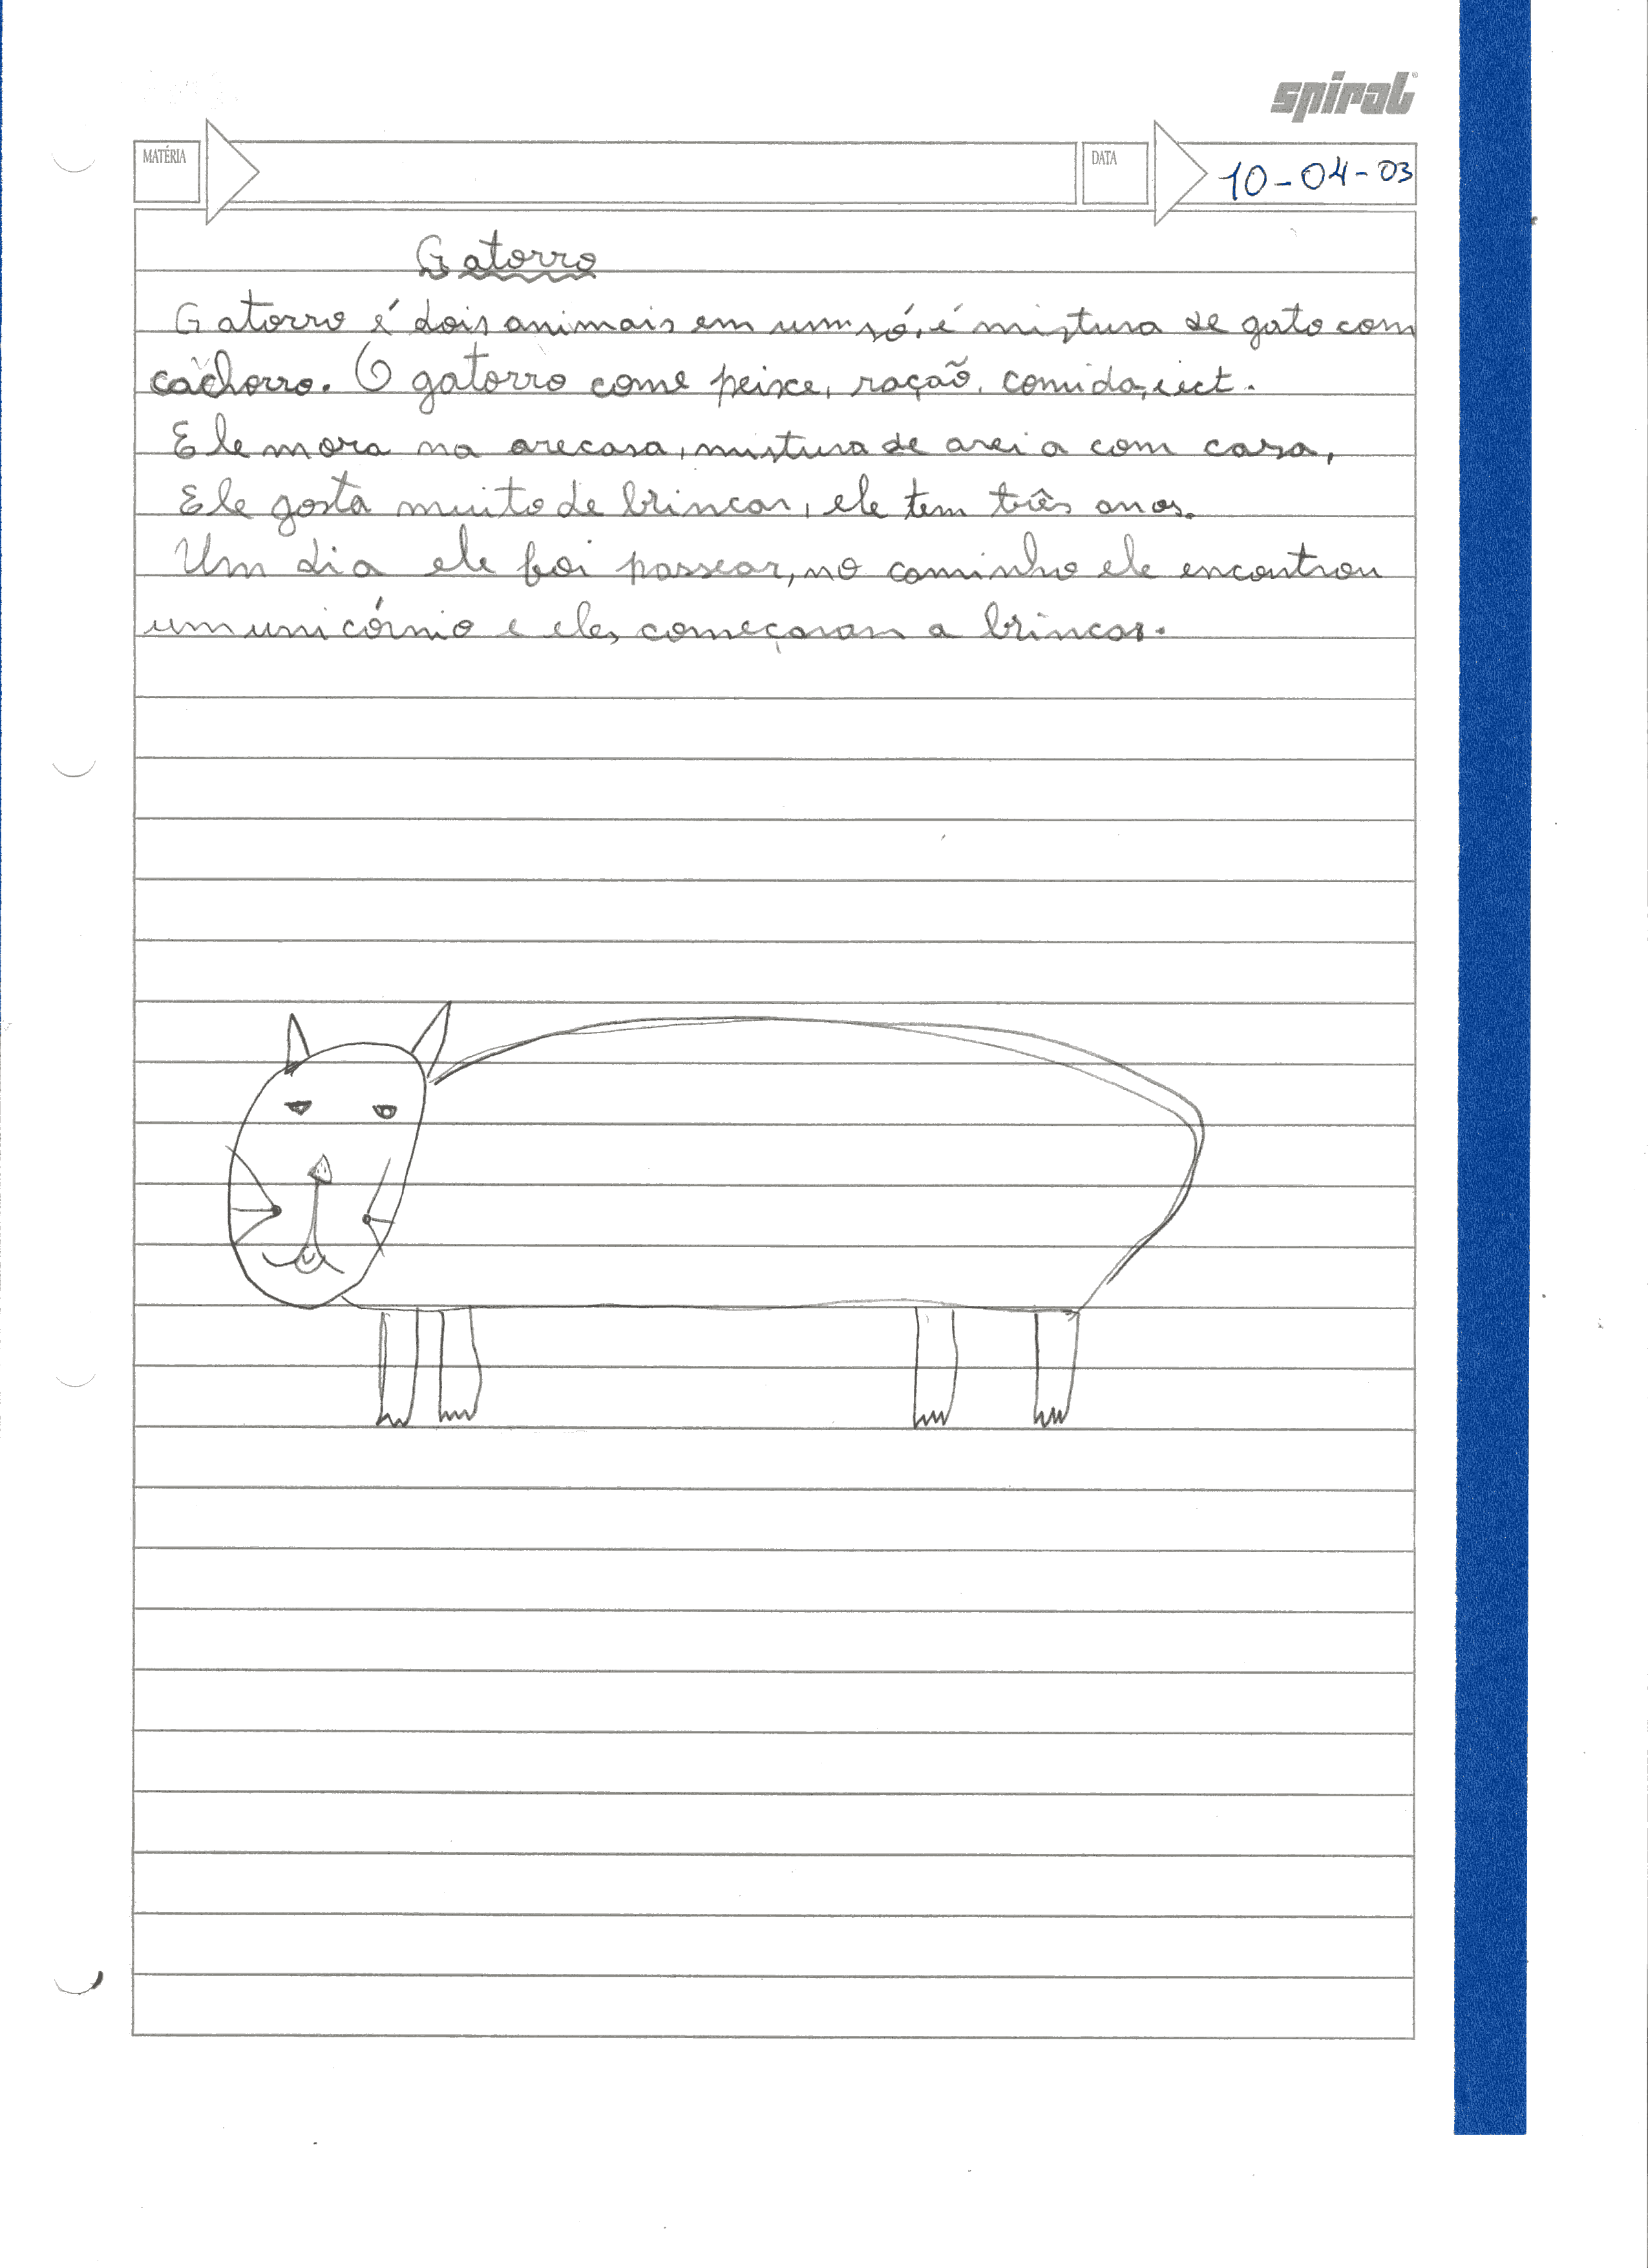 spiral
MATÉRIA
DATA
10-04-03
Gatorro
Gatorro é dois animais em um só, é mistura de gato com
cachorro. O gatorro come peixe, ração, comida, ect.
Ele mora na arecasa, mistura de areia com casa,
Ele gosta muito de brincar, ele tem três anos.
Um dia ele foi passear, no caminho ele encontrou
um unicórnio e eles começaram a brincar.